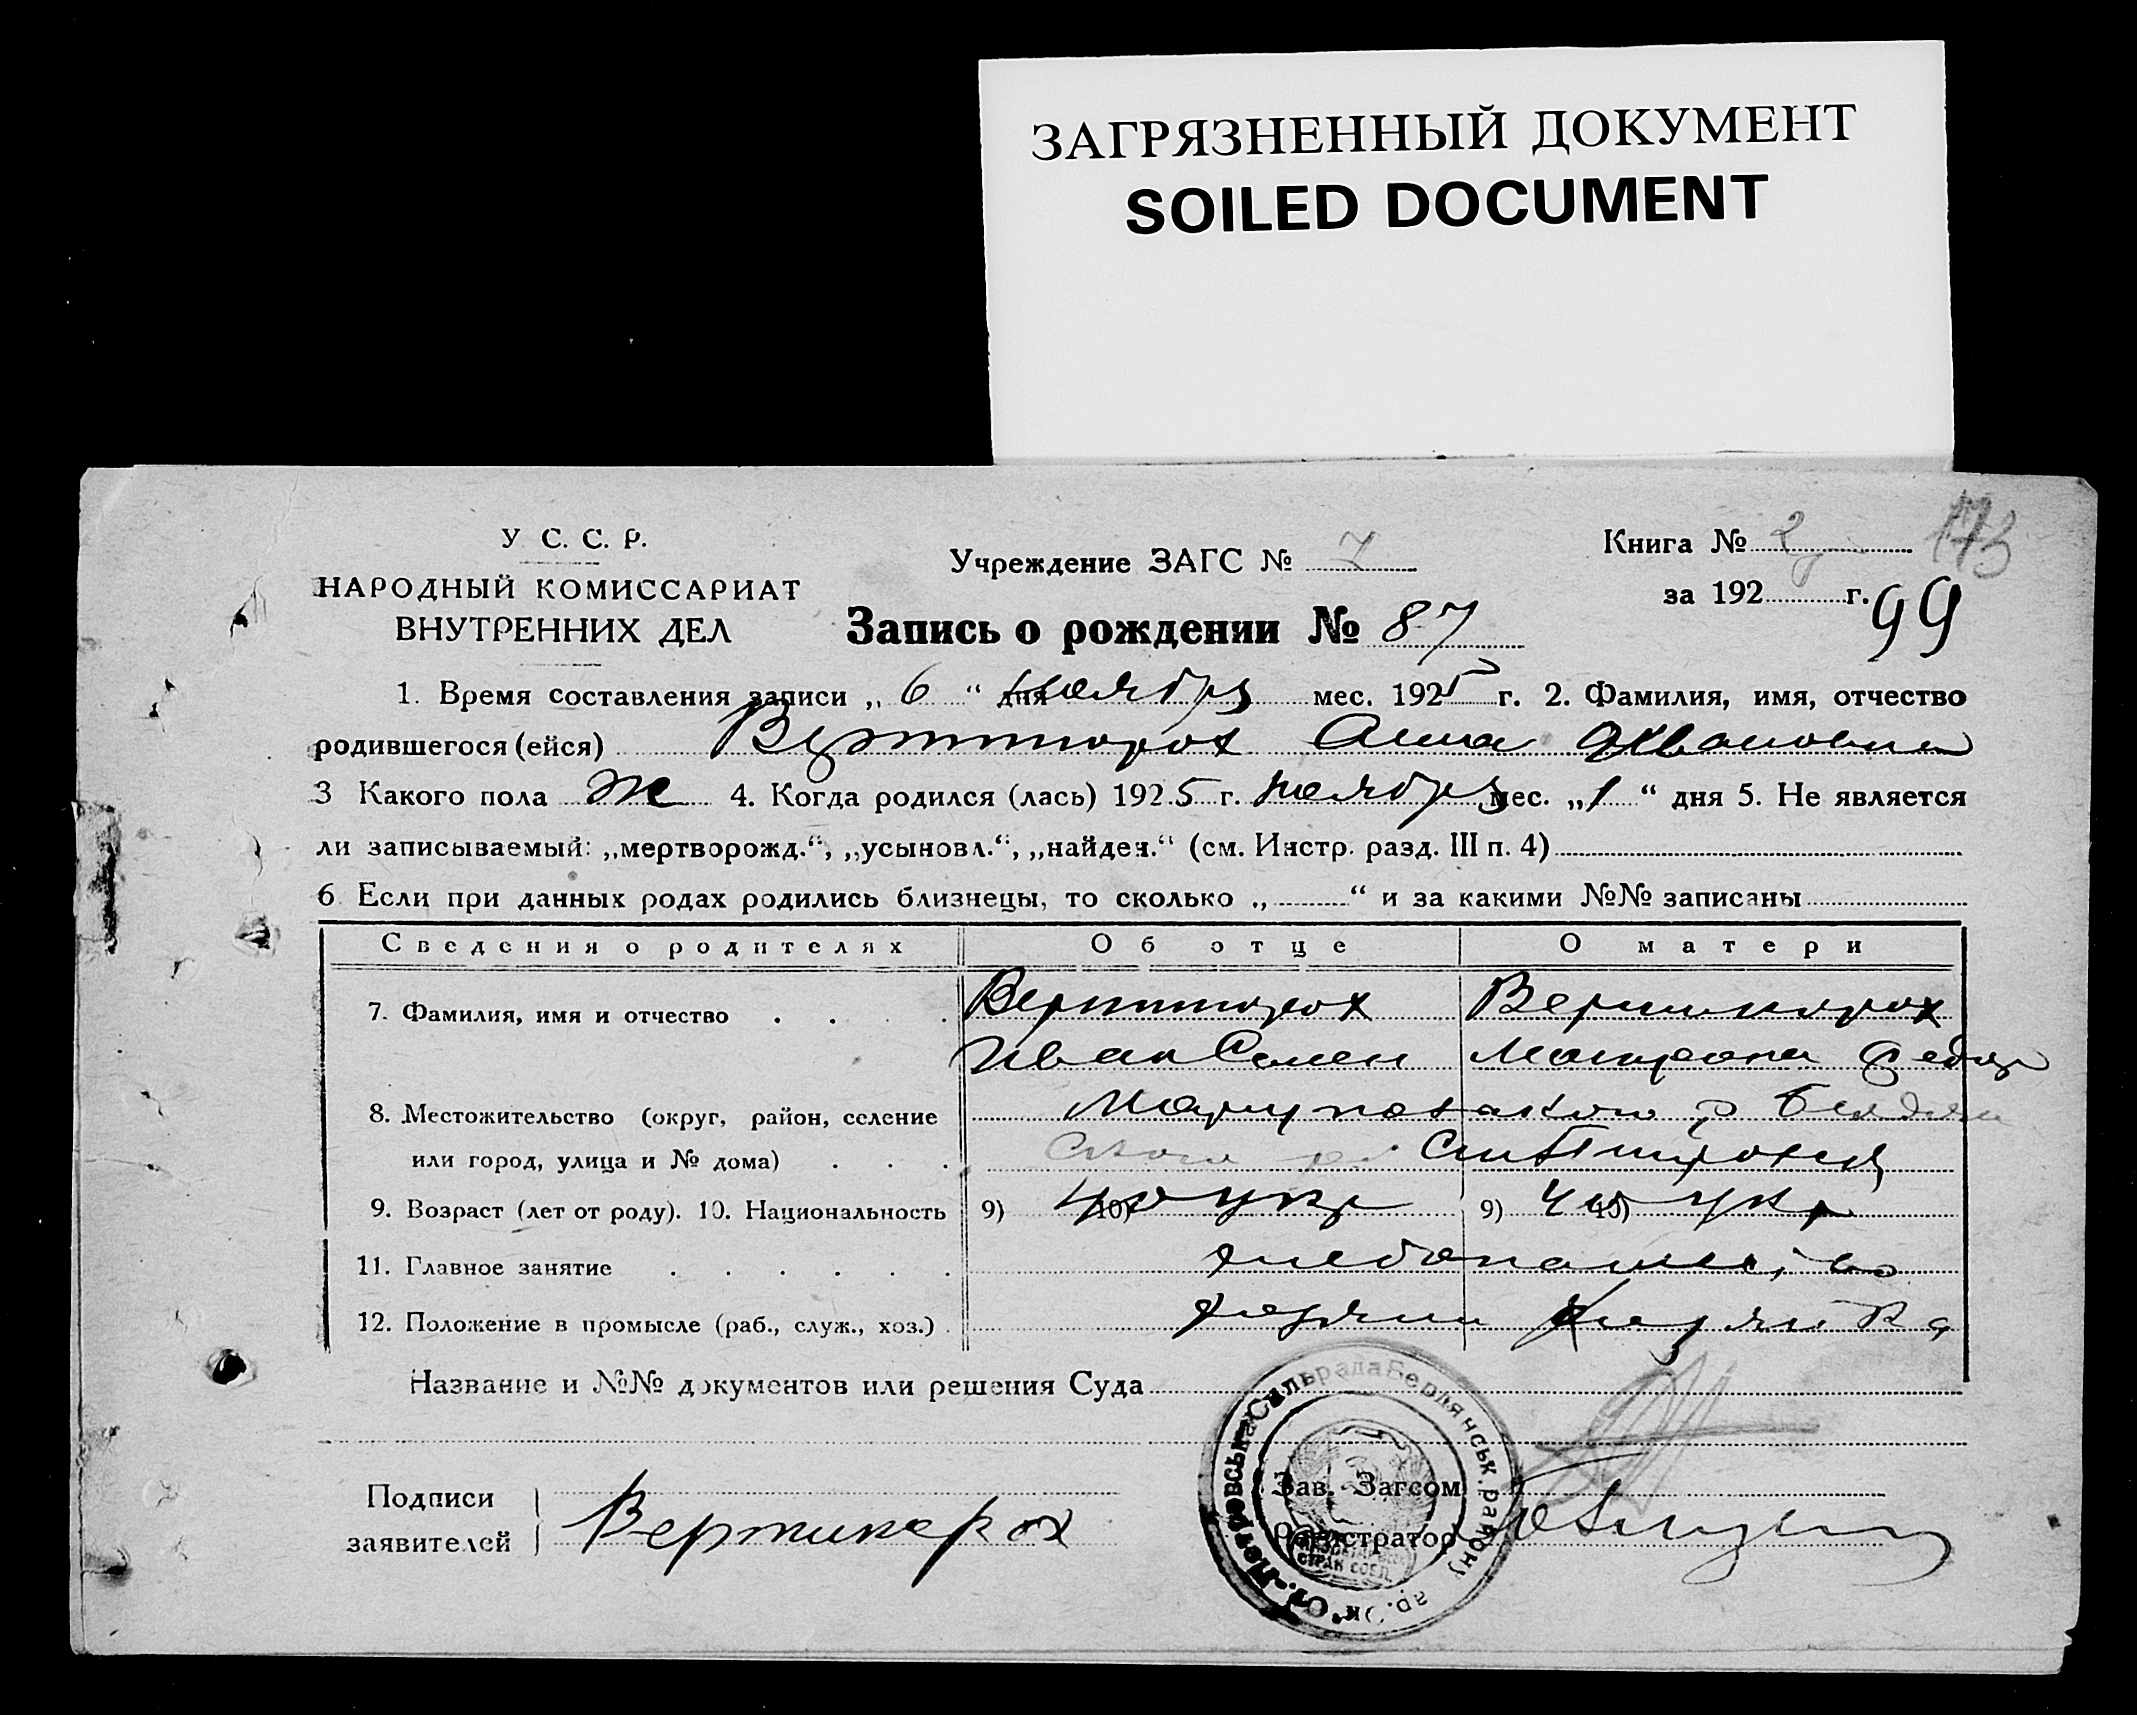 ЗАГРЯЗНЕННЫЙ ДОКУМЕНТ
SOILED DOCUMENT
173
У. С. С. Р.
НАРОДНЫЙ КОМИССАРИАТ
ВНУТРЕННИХ ДЕЛ
Учреждение ЗАГС № 7
Книга № 2
за 192 г.
99
Запись о рождении № 87
1. Время составления записи „ 6 “ дня ноября мес. 1925 г. 2. Фамилия, имя, отчество
родившегося (ейся) Вертипорох Анна Ивановна
3 Какого пола ж 4. Когда родился (лась) 1925 г. ноября мес. „ 1 “ дня 5. Не является
ли записываемый: „мертворожд.“, „усыновл.“, „найден.“ (см. Инстр. разд. III п. 4)
6 Если при данных родах родились близнецы, то сколько „ “ и за какими №№ записаны
Сведения о родителях Об отце О матери
7. Фамилия, имя и отчество Вертипорох Вертипорох
Иван Семен Матрона Федор
8. Местожительство (округ, район, селение Мариупольского
или город, улица и № дома) ского
9. Возраст (лет от роду). 10. Национальность 9) 40 10) укр 9) 40 10) укр
11. Главное занятие хлебопашество
12. Положение в промысле (раб., служ., хоз.) хозяин хозяйка
Название и №№ документов или решения Суда
Подписи
заявителей
Вертипорох
Зав. Загсом
Регистратор
Ст.-Петровська Сильрада Бердянськ. району